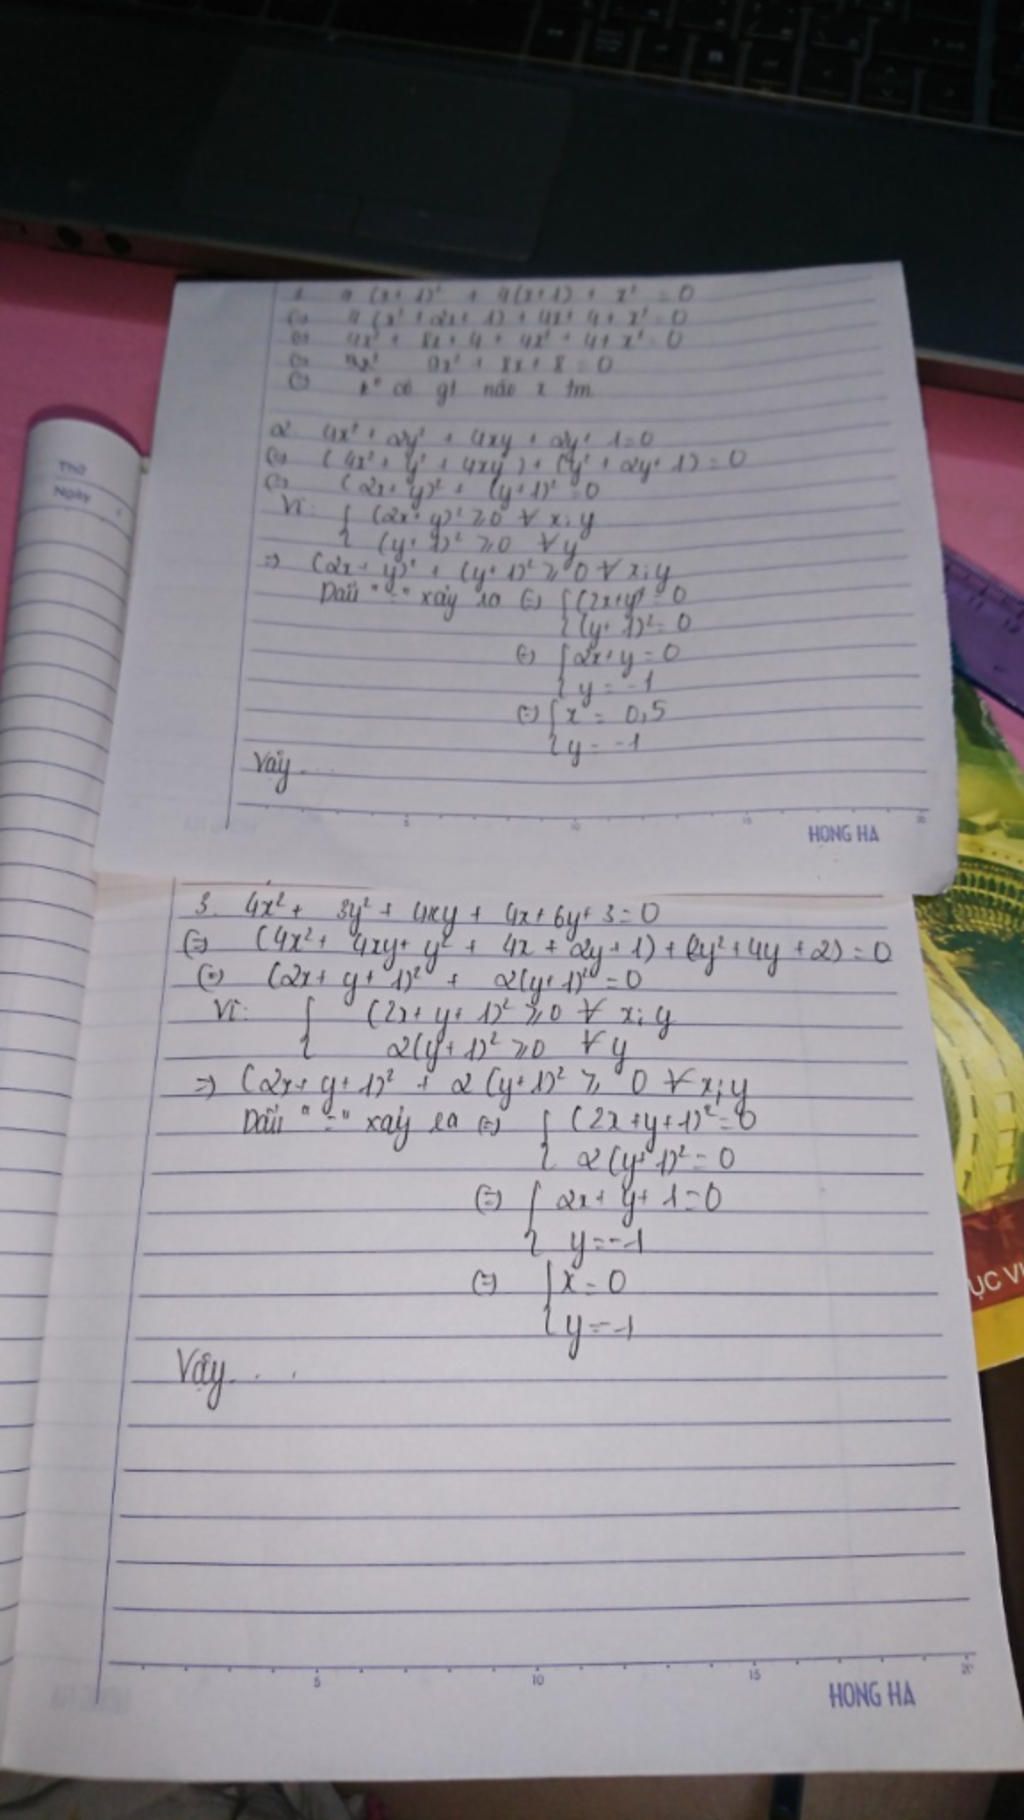 Thứ
Ngày
1. 4(x+1)² + 4(x+1) + x² = 0
(=) 4(x²+2x+1) + 4x+4+x²=0
(=) 4x² + 8x+4 + 4x² + 4+ x² = 0
(=) 9x² + 8x + 8 = 0
(=) k° có gt nào x tm
2. 4x² + 2y² + 4xy + 2y+ 1=0
(=) (4x²+ y² + 4xy) + (y² + 2y+ 1) = 0
(=) (2x+y)² + (y+1)² = 0
Vì: { (2x+y)² ≥0 ∀ x;y
(y+1)² ≥0 ∀y
=) (2x+y)² + (y+1)² ≥ 0 ∀ x;y
Dấu "=" xảy ra (=) { (2x+y)² = 0
(y+1)² = 0
(=) { 2x+y = 0
y = -1
(=) { x = 0,5
y = -1
Vậy...
5 10 15 20
HONG HA
3. 4x² + 3y² + 4xy + 4x+6y+3=0
(=) (4x²+ 4xy+ y² + 4x + 2y+1) + (2y²+4y+2) = 0
(=) (2x+ y+1)² + 2(y+1)² = 0
Vì: { (2x+y+1)² ≥0 ∀ x;y
2(y+1)² ≥0 ∀y
=) (2x+y+1)² + 2(y+1)² ≥ 0 ∀x;y
Dấu "=" xảy ra (=) { (2x+y+1)²=0
2(y+1)²=0
(=) { 2x+ y+ 1=0
y=-1
(=) { x=0
y=-1
Vậy...
5 10 15 20
HONG HA
ỤC VI